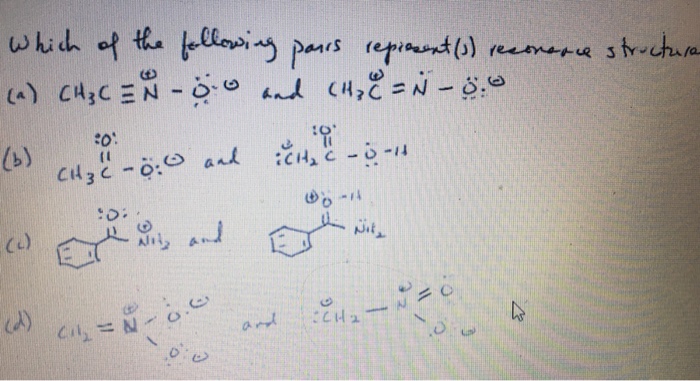 Which of the following pairs represent(s) resonance structure
(a) CH₃C ≡ N⊕ - Ö:⊖ and CH₃C⊕ = N̈ - Ö:⊖
:O:
(b) CH₃C - Ö:⊖ and
:O:
⊖:CH₂ C - Ö - H
:O:
(c) and
⊕Ö - H
N̈H₂
(d) CH₂ = N⊕ - Ö:⊖ and ⊖:CH₂ - N⊕ = Ö
Ö:⊖